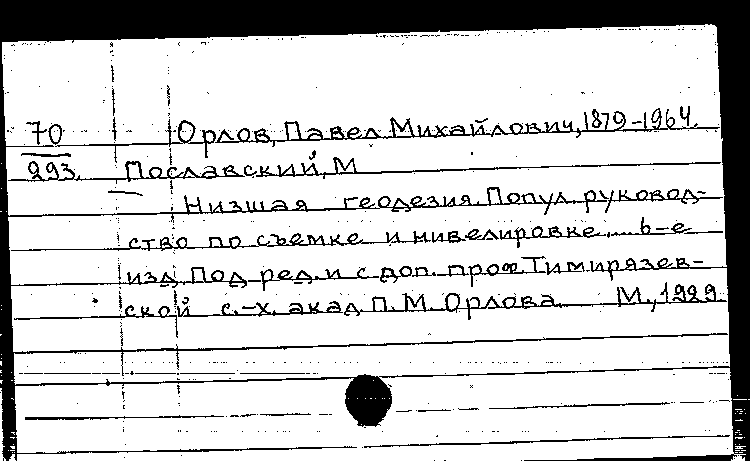 70 Орлов, Павел Михайлович, 1879-1964.
293. Пославский, М
Низшая геодезия. Попул. руковод-
ство по съемке и нивелировке.... 6-е
изд. Под ред. и с доп. проф. Тимирязев-
ской с.-х. акад. П. М. Орлова. М., 1929.